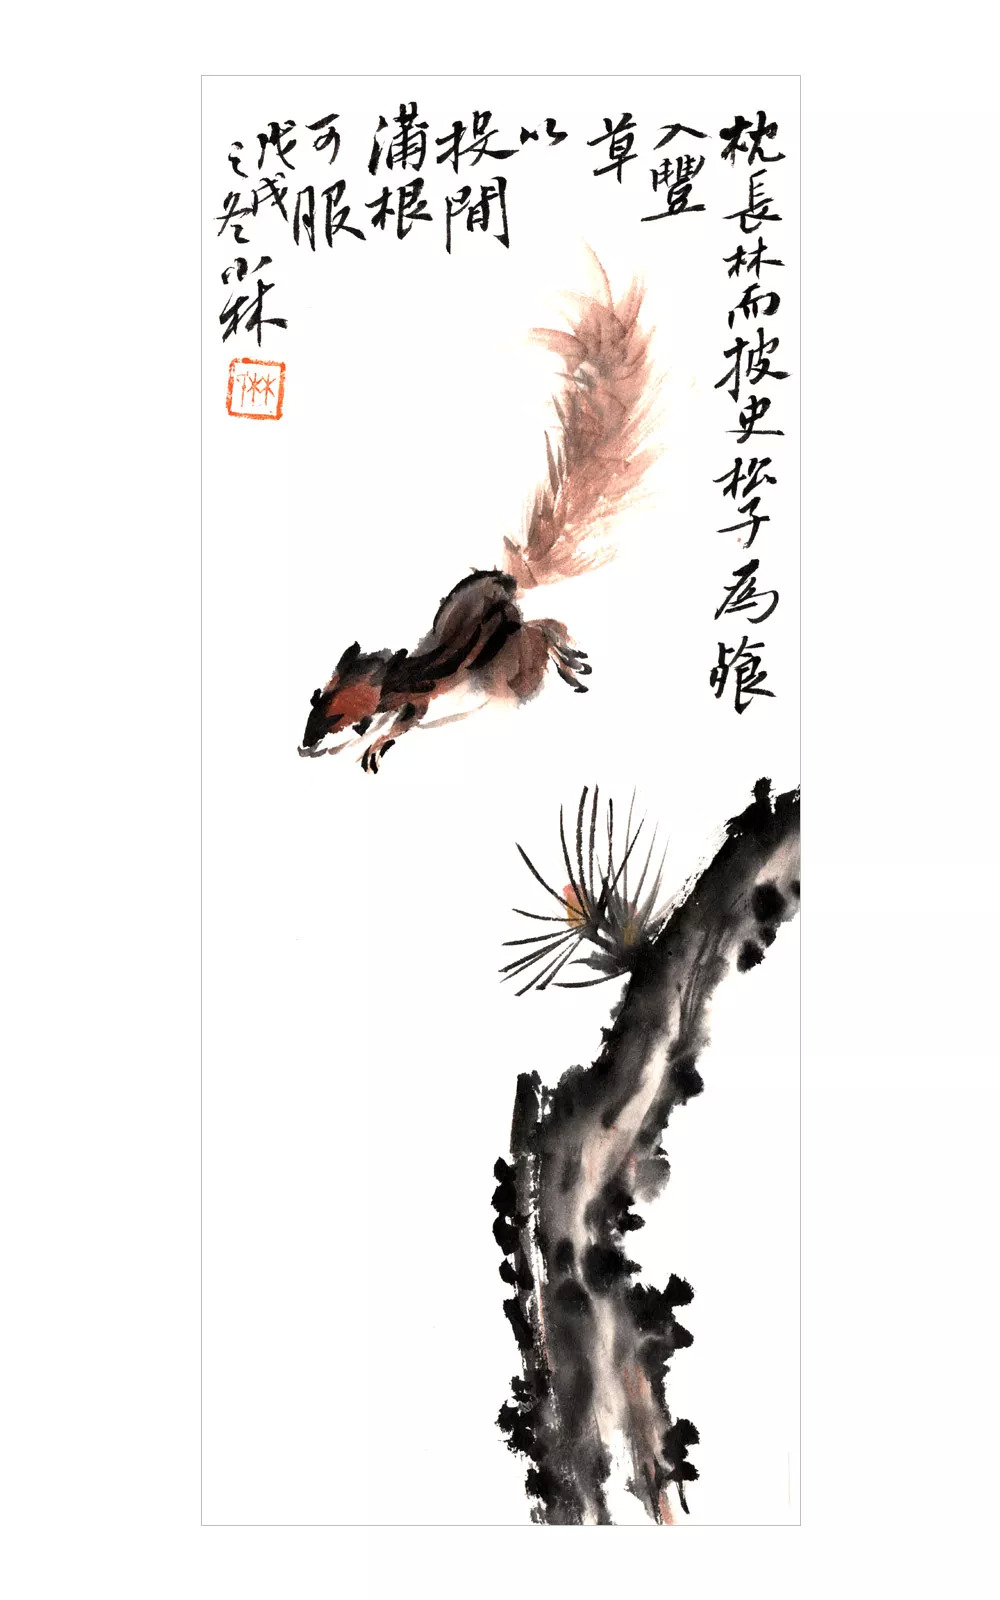 枕長林而披史松子為飡
入豐
草
以
投間
蒲根
可服
戊戌
之冬小林
林